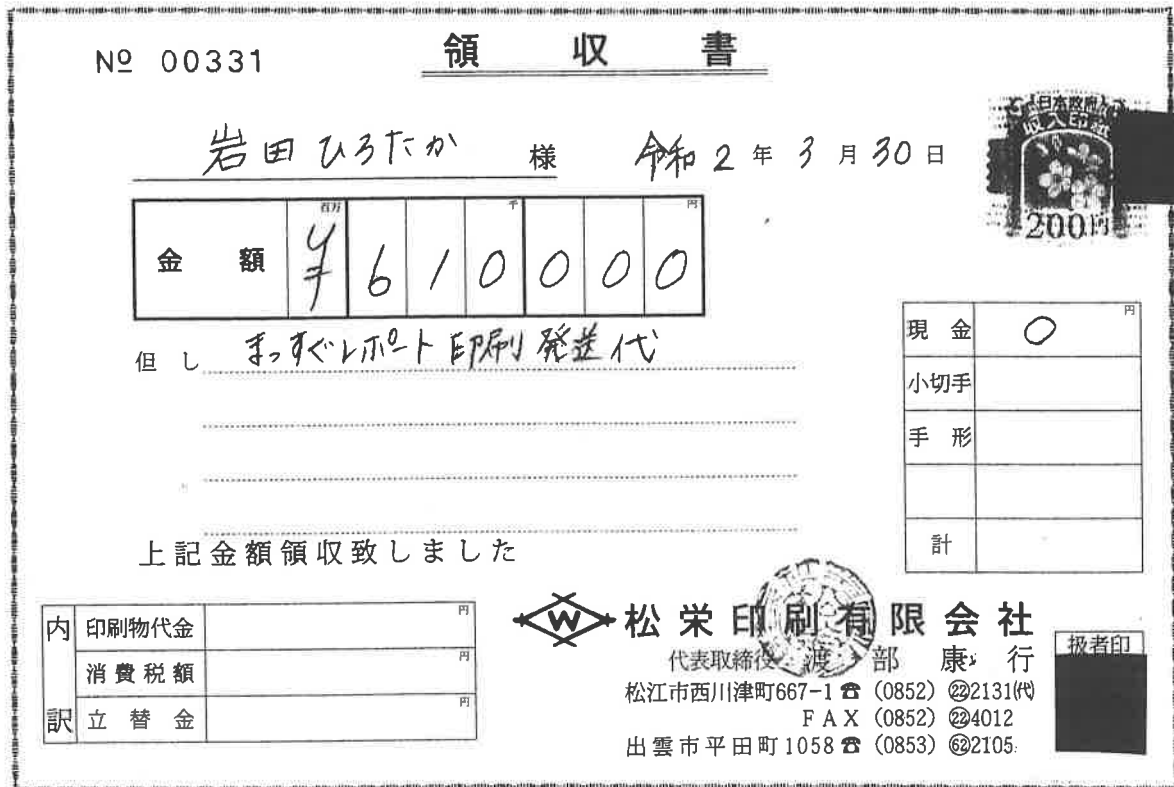 領収書
№ 00331
岩田ひろたか 様 令和2年3月30日
日本政府
収入印紙
200円
金額 百万 千 円
¥610000
但し まっすぐレポート印刷発送代
現金 ○ 円
小切手
手形
計
上記金額領収致しました
内訳
印刷物代金 円
消費税額 円
立替金 円
W 松栄印刷有限会社
代表取締役 渡部康行
松江市西川津町667-1 ☎ (0852) ㉒2131㈹
FAX (0852) ㉒4012
出雲市平田町1058 ☎ (0853) 622105
扱者印